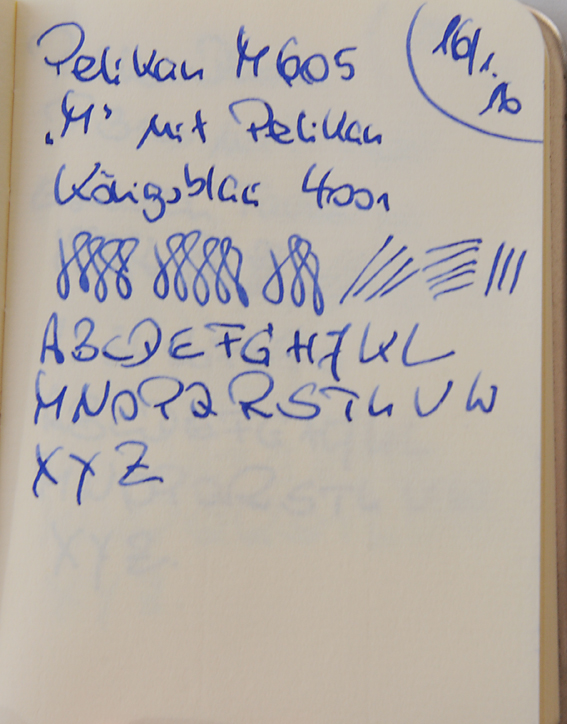 Pelikan M605
16/1.10
„M" mit Pelikan
Königsblau 4001
ABCDEFGHJKL
MNOPQRSTUVW
XYZ